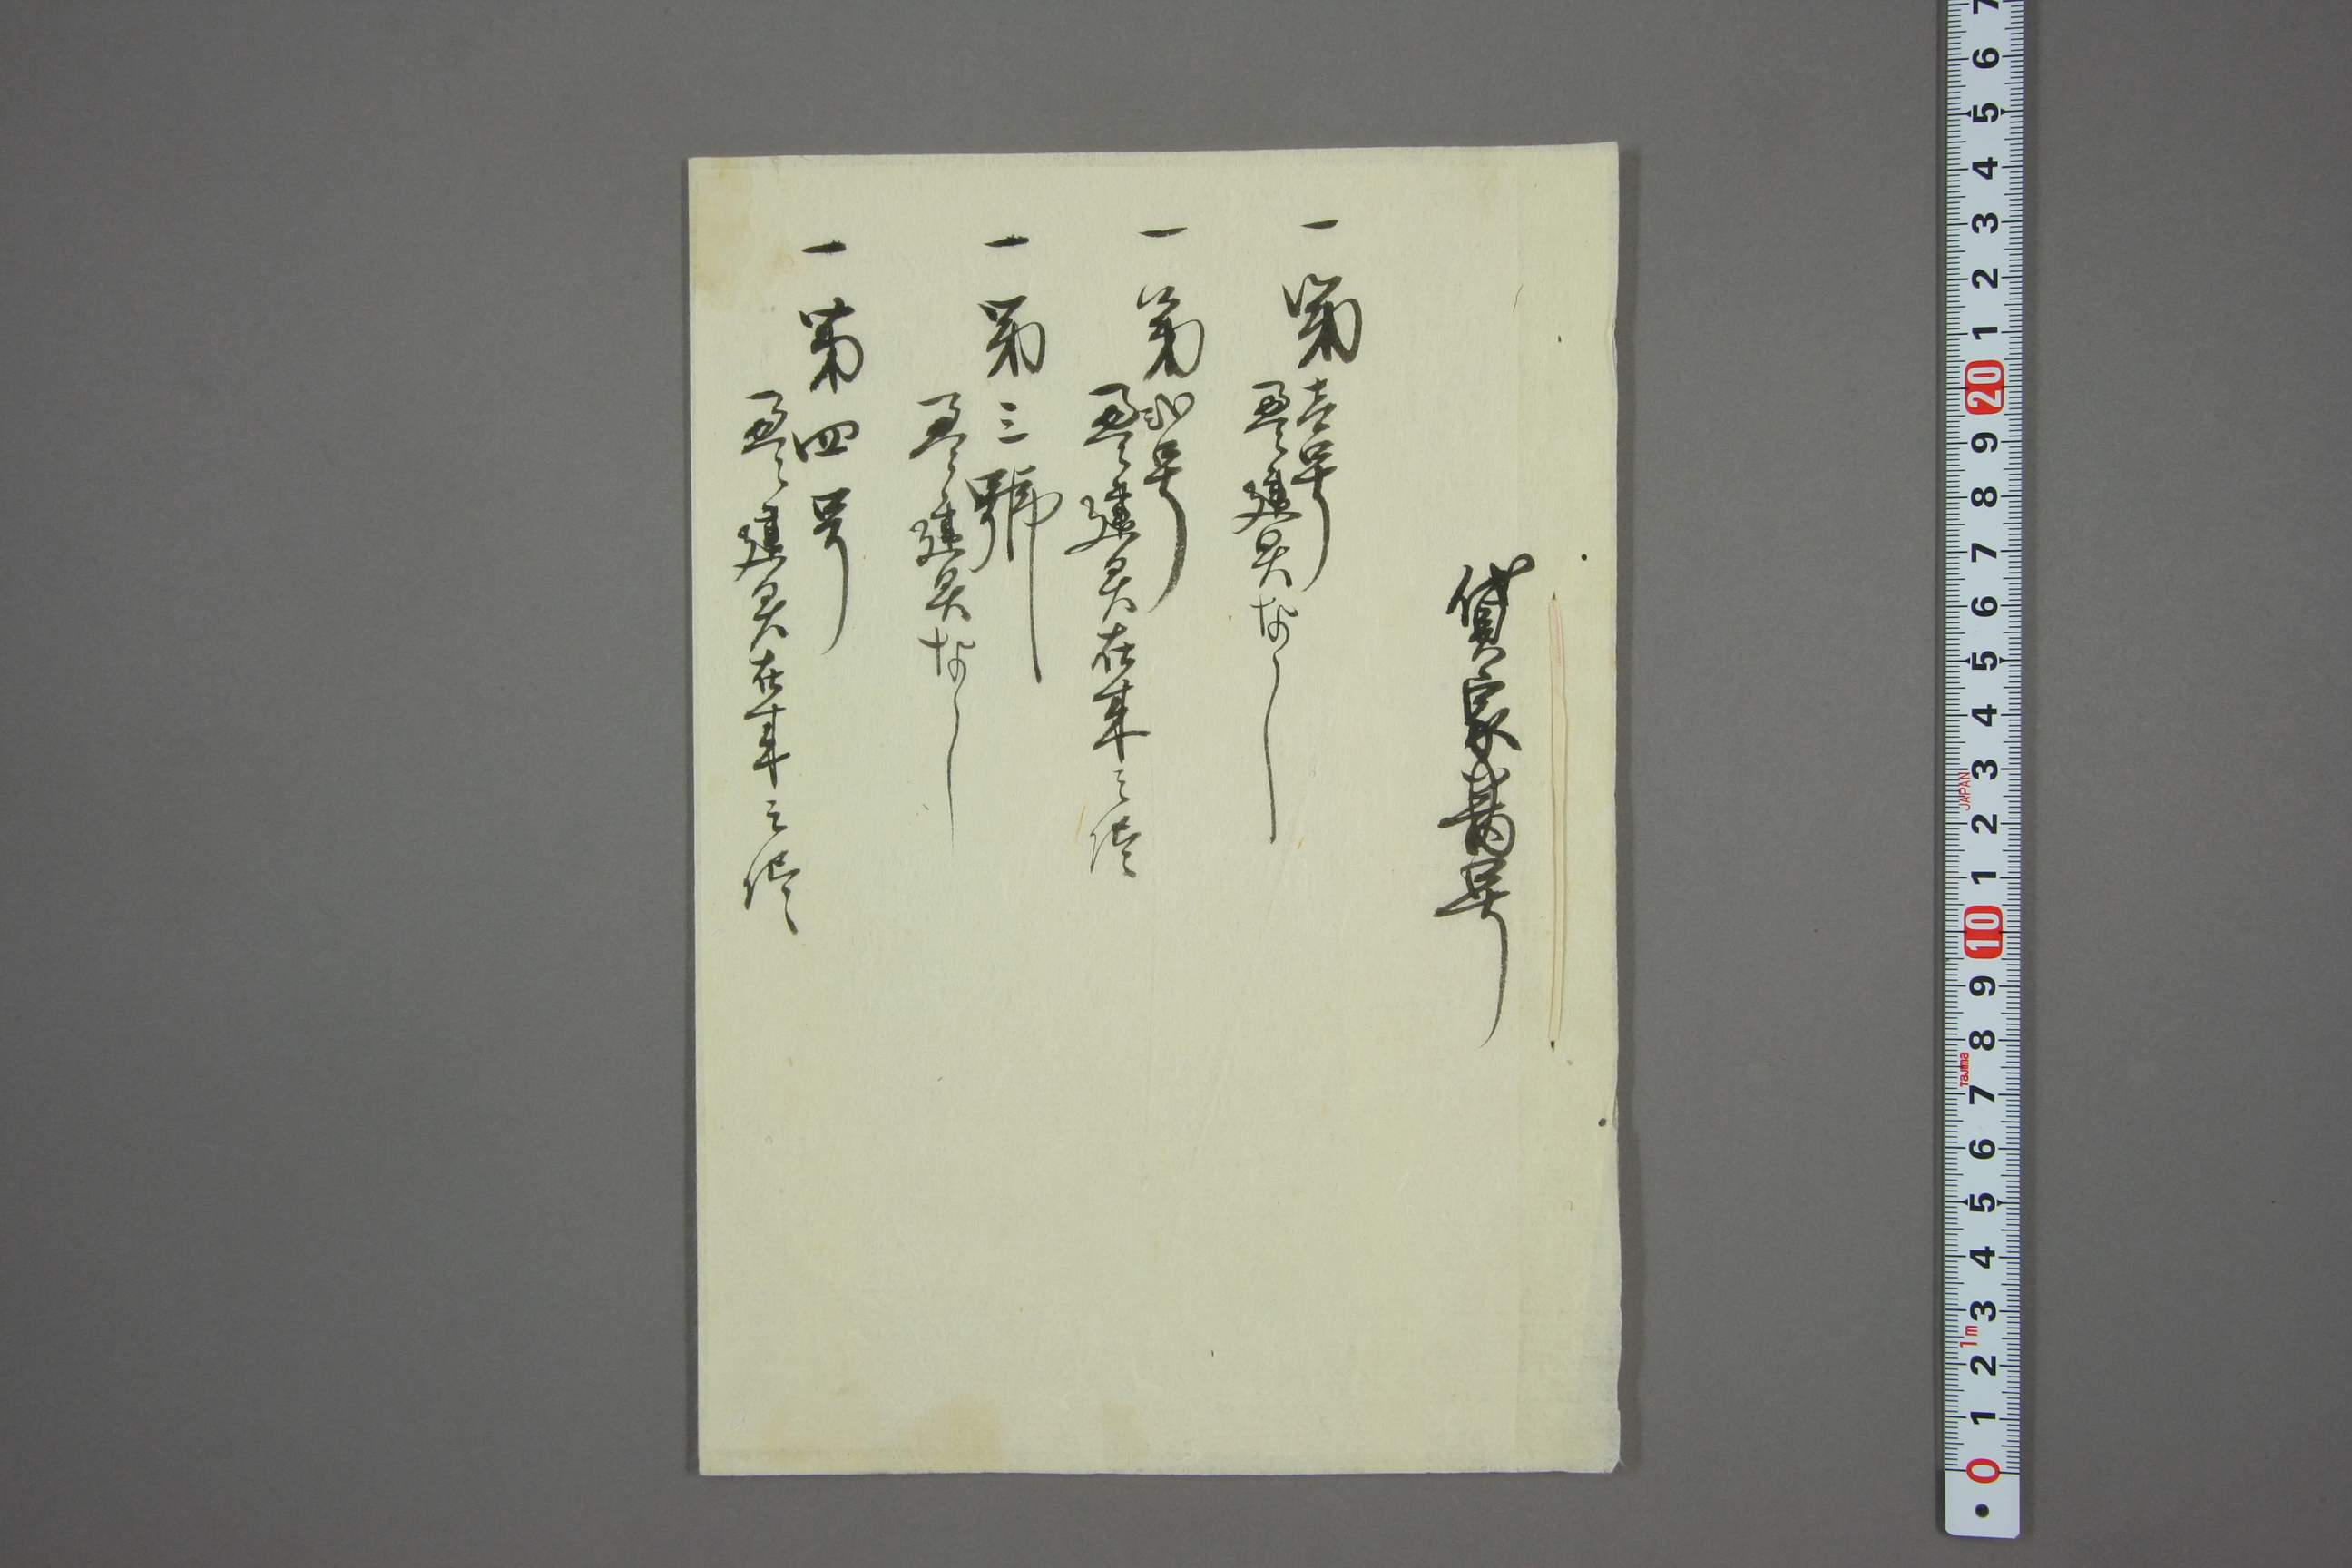 貸家番号
一 第壱号
畳建具なし
一 第弐号
畳建具在来之侭
一 第三號
畳建具なし
一 第四号
畳建具在来之侭
7 6 5 4 3 2 1 20 9 8 7 6 5 4 3 2 1 10 9 8 7 6 5 4 3 2 1 0
JAPAN
Tajima
1m